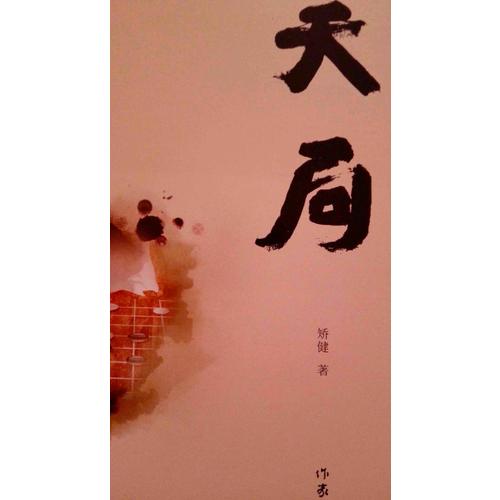 天局
矫健 著
作家